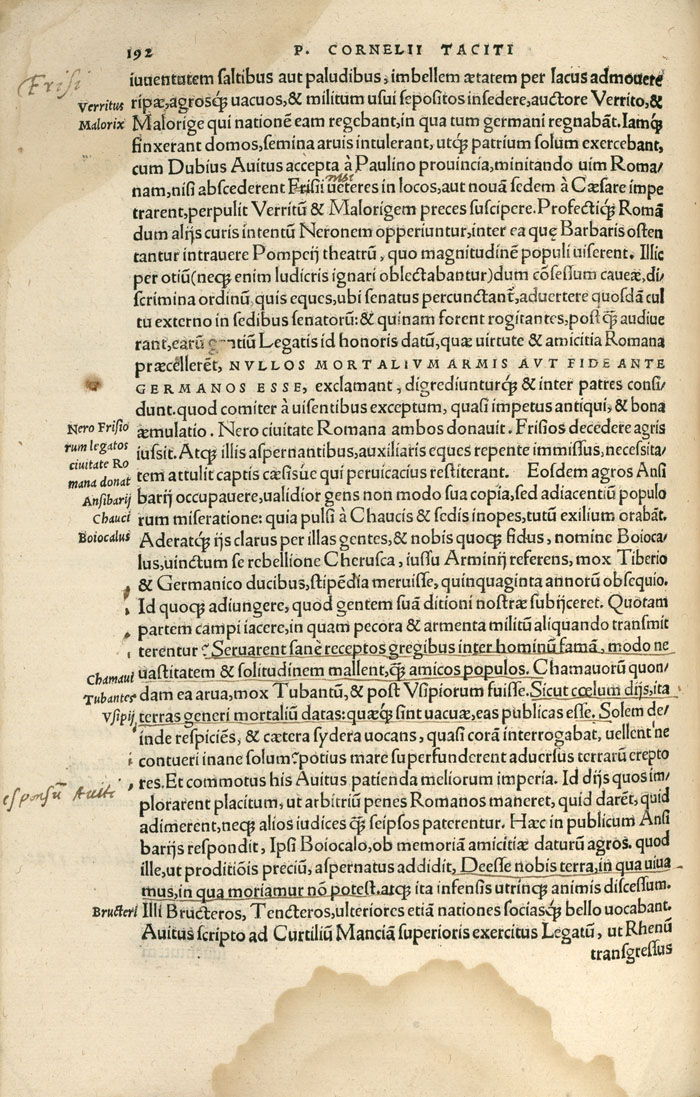 192
P. CORNELII TACITI
Frisi
iuuentutem saltibus aut paludibus, imbellem ætatem per lacus admouere
Verritus
Malorix
ripæ, agrosq́; uacuos, & militum usui sepositos insedere, auctore Verrito, &
Malorige qui nationē eam regebant, in qua tum germani regnabāt. Iamq́;
finxerant domos, semina aruis intulerant, utq́; patrium solum exercebant,
cum Dubius Auitus accepta à Paulino prouincia, minitando uim Roma/
nam, nisi abscederent Frisii ueteres in locos, aut nouā sedem à Cæsare impe
trarent, perpulit Verritū & Malorigem preces suscipere. Profectiq́; Romā
dum alijs curis intentū Neronem opperiuntur, inter ea quę Barbaris osten
tantur intrauere Pompeij theatrū, quo magnitudinē populi uiserent. Illic
per otiū (neq́; enim ludicris ignari oblectabantur) dum cōsessum caueæ, di/
scrimina ordinū, quis eques, ubi senatus percunctant̃, aduertere quosdā cul
tu externo in sedibus senatorū: & quinam forent rogitantes, post q̃ audiue
rant, earū gentiū Legatis id honoris datū, quæ uirtute & amicitia Romana
præcellerēt, NVLLOS MORTALIVM ARMIS AVT FIDE ANTE
GERMANOS ESSE, exclamant, digrediunturq́; & inter patres consi/
dunt. quod comiter à uisentibus exceptum, quasi impetus antiqui, & bona
Nero Frisio
rum legatos
ciuitate Ro
mana donat
æmulatio. Nero ciuitate Romana ambos donauit. Frisios decedere agris
iussit. Atq́; illis aspernantibus, auxiliaris eques repente immissus, necessita/
tem attulit captis cæsisúe qui peruicacius restiterant. Eosdem agros Ansi
Ansibarij
Chauci
Boiocalus
barij occupauere, ualidior gens non modo sua copia, sed adiacentiū populo
rum miseratione: quia pulsi à Chaucis & sedis inopes, tutū exilium orabāt.
Aderatq́; ijs clarus per illas gentes, & nobis quoq́; fidus, nomine Boioca/
lus, uinctum se rebellione Cherusca, iussu Arminij referens, mox Tiberio
& Germanico ducibus, stipēdia meruisse, quinquaginta annorū obsequio.
Id quoq́; adiungere, quod gentem suā ditioni nostræ subijceret. Quotam
partem campi iacere, in quam pecora & armenta militū aliquando transmit
terentur? Seruarent sanè receptos gregibus inter hominū famā, modo ne
Chamaui
Tubantes
Vsipij
uastitatem & solitudinem mallent, q̃ amicos populos. Chamauorū quon/
dam ea arua, mox Tubantū, & post Vsipiorum fuisse. Sicut cœlum dijs, ita
terras generi mortaliū datas: quæq́; sint uacuæ, eas publicas esse. Solem de/
inde respiciēs, & cætera sydera uocans, quasi corā interrogabat, uellent ne
contueri inane solum? potius mare superfunderent aduersus terrarū erepto
res. Et commotus his Auitus patienda meliorum imperia. Id dijs quos im/
esponsū Auiti
plorarent placitum, ut arbitriū penes Romanos maneret, quid darēt, quid
adimerent, neq́; alios iudices q̃ seipsos paterentur. Hæc in publicum Ansi
barijs respondit, Ipsi Boiocalo, ob memoriā amicitiæ daturū agros. quod
ille, ut proditiōis preciū, aspernatus addidit, Deesse nobis terra, in qua uiua
mus, in qua moriamur nō potest. atq́; ita infensis utrinq́; animis discessum.
Bructeri
Illi Bructeros, Tencteros, ulteriores etiā nationes sociasq́; bello uocabant.
Auitus scripto ad Curtiliū Manciā superioris exercitus Legatū, ut Rhenū
transgressus